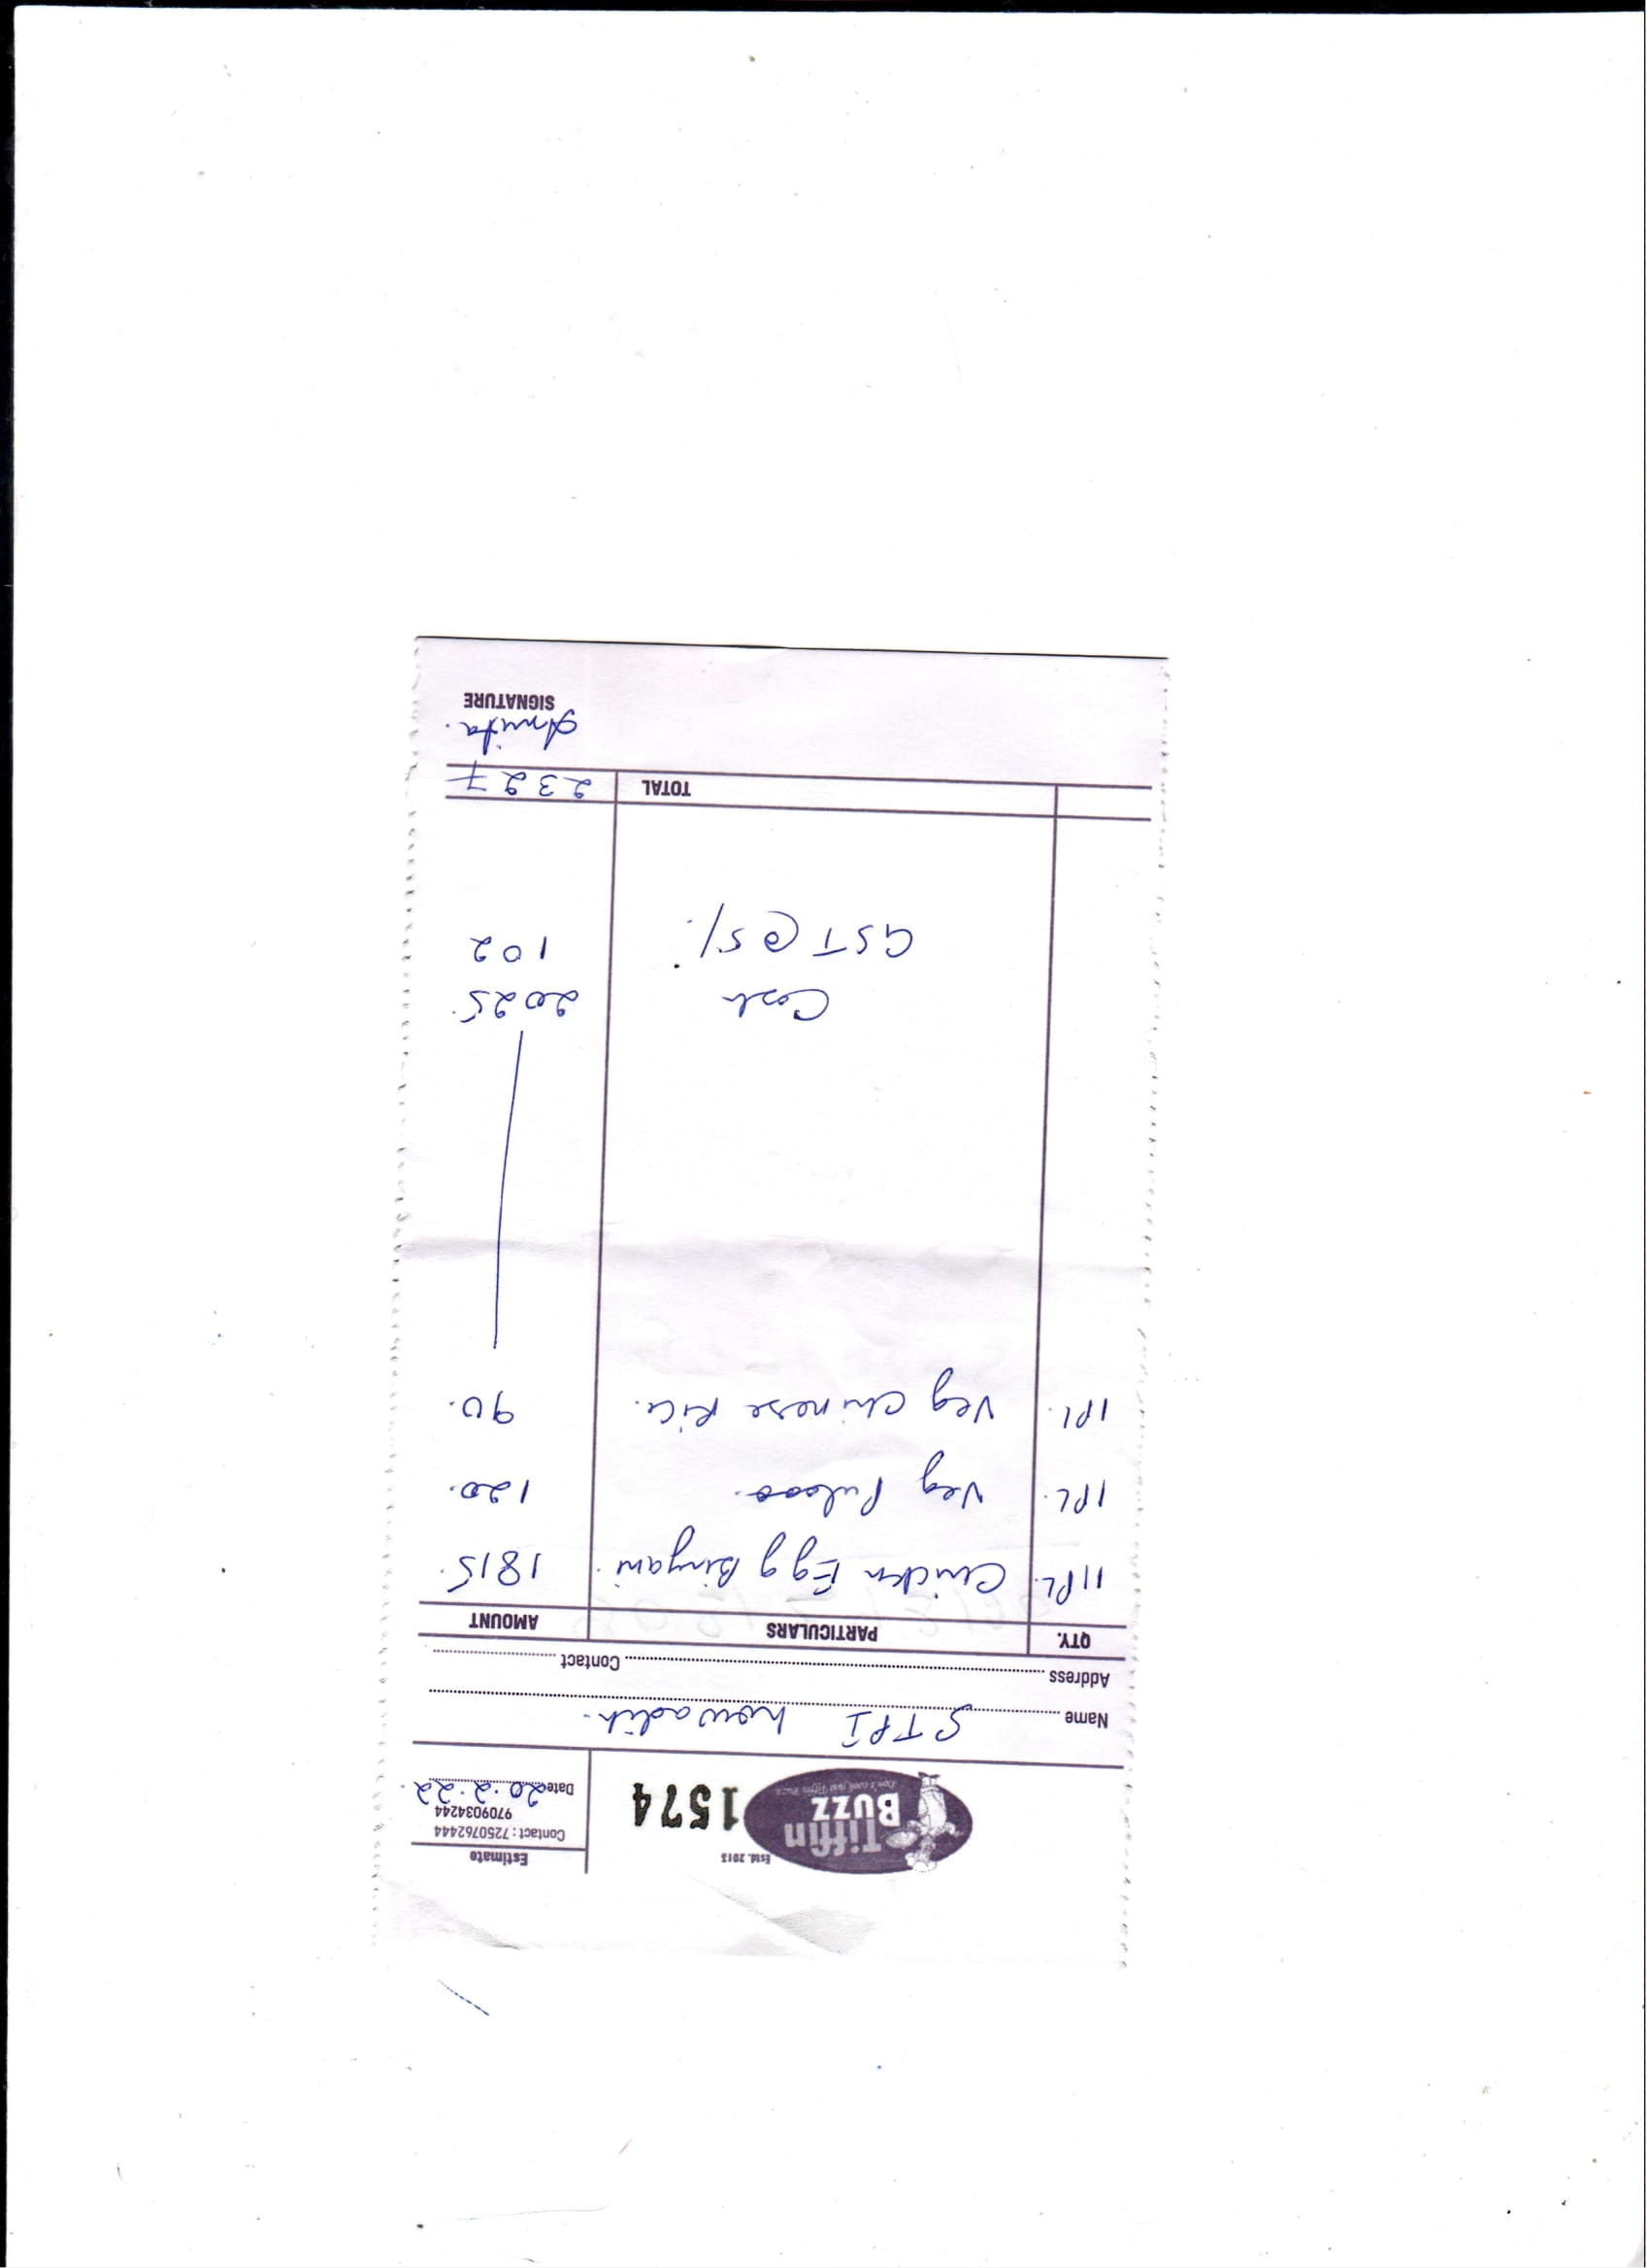 Tiffin
BUZZ
Don't cook just Tiffin Buzz
Estd. 2013
1574
Estimate
Contact : 7250762444
9709034244
Date 20.2.22.
Name STPI howadih.
Address Contact
QTY. PARTICULARS AMOUNT
11PL. Chickn Egg Biryani. 1815.
1PL. Veg Pulaoo. 120.
1Pl. Veg Chinese Rice. 90.
Cash 2025.
GST @ 5%. 102
TOTAL 2327
Amita.
SIGNATURE